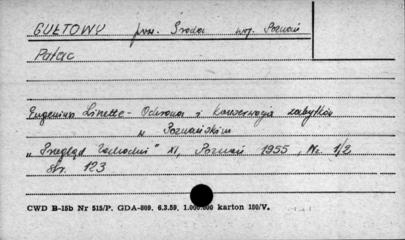 GUŁTOWY pow. Środa woj. Poznań
Pałac
Eugeniusz Linette - Ochrona i konserwacja zabytków
w Poznańskim
"Przegląd Zachodni" XI, Poznań 1955, Nr. 1/2
str. 123
CWD B-15b Nr 515/P. GDA-809. 6.3.59, 1.000.000 karton 180/V.